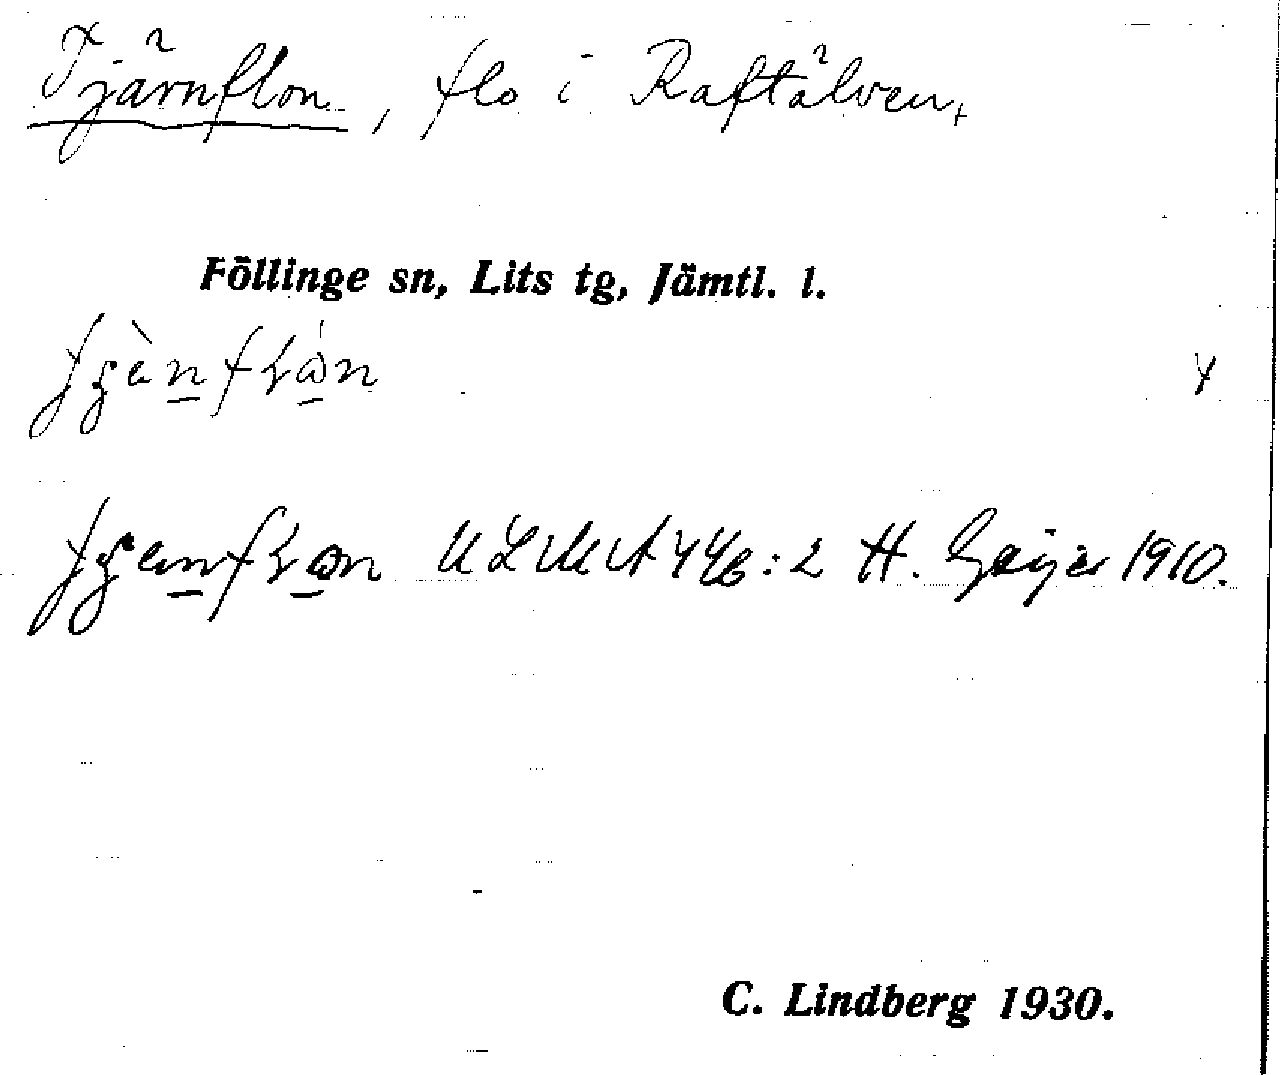 Tjärnflon, flo i Raftälven,
Föllinge sn, Lits tg, Jämtl. l.
4
ULMA 446:2 H. Geijer 1910.
C. Lindberg 1930.